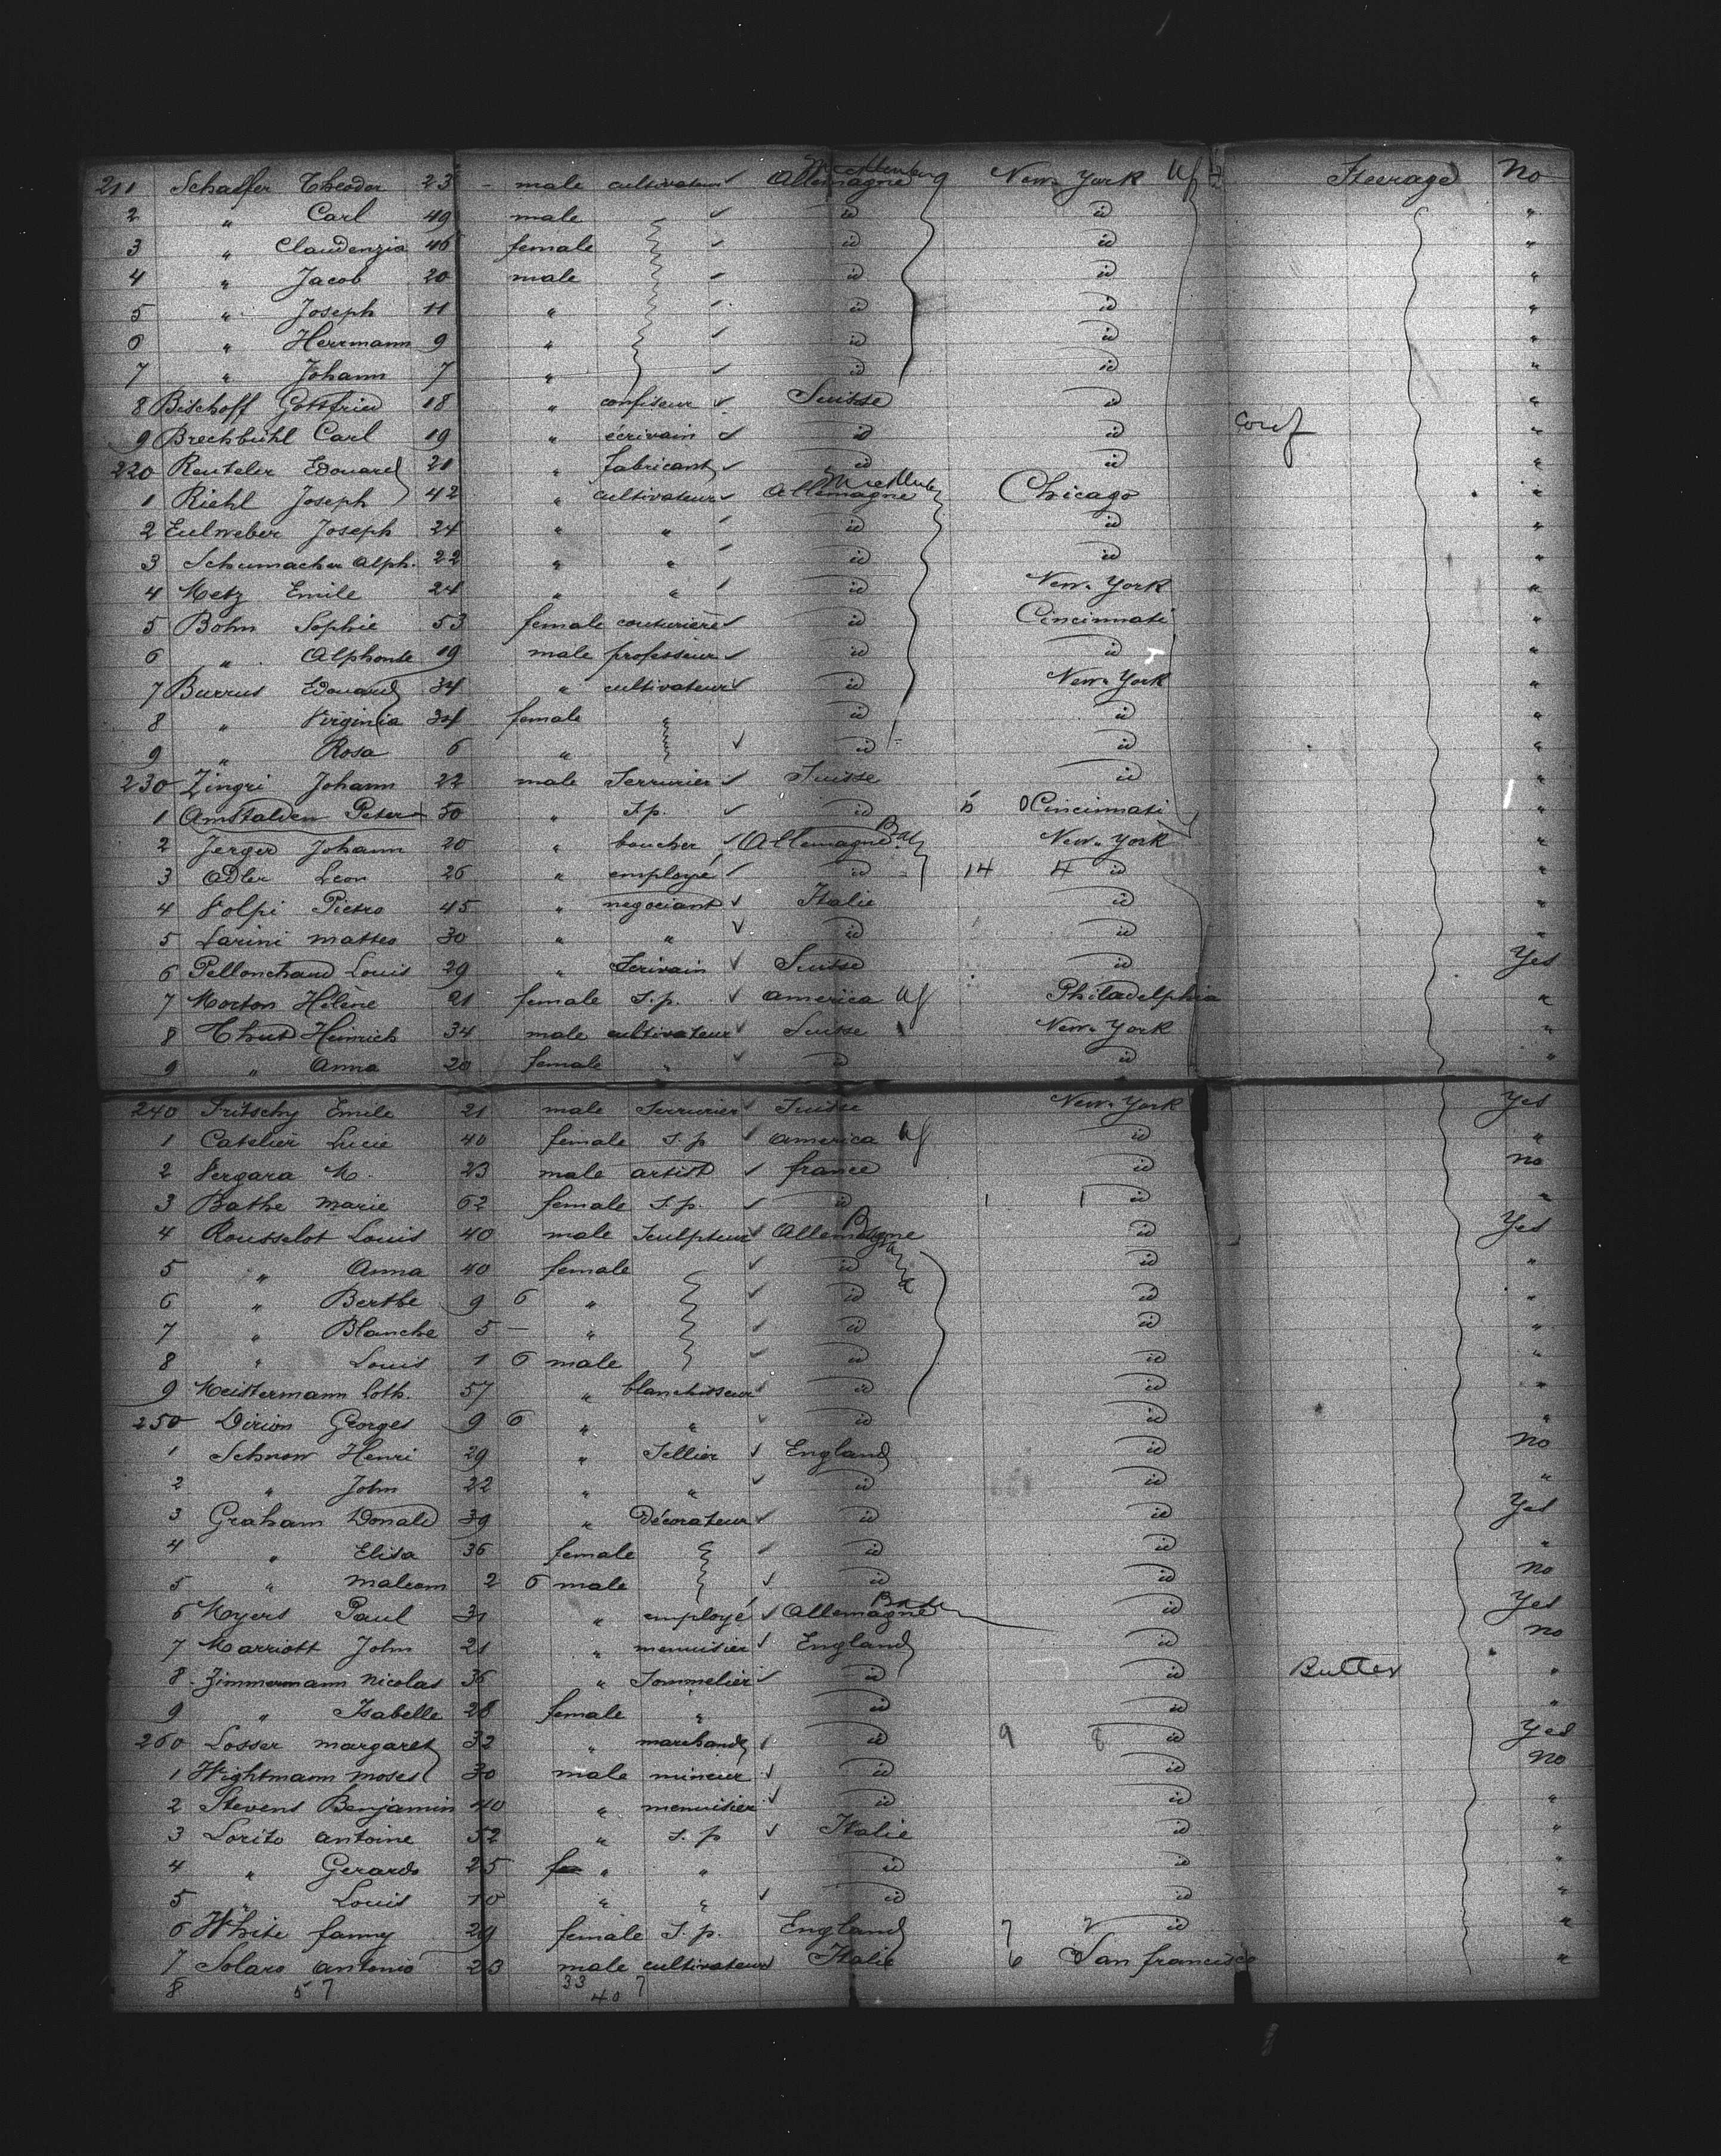 211 Schaffer Theodor 23 - male cultivateur ✓ Allemagne Mecklenburg New-York Steerage No
2 " Carl 49 male ✓ id id "
3 " Claudenzia 46 female ✓ id id "
4 " Jacob 20 male ✓ id id "
5 " Joseph 11 " ✓ id id "
6 " Herrmann 9 " ✓ id id "
7 " Johann 7 " ✓ id id "
8 Bischoff Gottfried 18 " confiseur ✓ Suisse id "
9 Brechbühl Carl 19 " écrivain ✓ id id Conf "
220 Reuteler Edouard 21 " fabricant ✓ id id "
1 Riehl Joseph 42 " cultivateur ✓ Allemagne Chicago "
2 Eulweber Joseph 24 " " ✓ id id "
3 Schumacher Alph. 22 " " ✓ id id "
4 Metz Emile 24 " " ✓ id New-York "
5 Bohn Sophie 53 female couturière ✓ id Cincinnati "
6 " Alphonse 19 male professeur ✓ id id "
7 Burrus Edouard 34 " cultivateur ✓ id New-York "
8 " Virginia 34 female " id id "
9 " Rosa 6 " ✓ id id "
230 Zingri Johann 22 male Serrurier ✓ Suisse id "
1 Amstalden Peter 50 " S.p. ✓ id Cincinnati "
2 Jerger Johann 20 " boucher ✓ Allemagne New-York "
3 Adler Leon 26 " employé ✓ id 14 4 id "
4 Volpi Pietro 45 " negociant ✓ Italie id "
5 Larini Matteo 30 " " ✓ id id "
6 Pellonchaud Louis 29 " Scrivain ✓ Suisse id Yes
7 Morton Hélène 21 female S.p. ✓ America Philadelphia "
8 Thut Heinrich 34 male cultivateur ✓ Suisse New-York "
9 " Anna 20 female " ✓ id id "
240 Fritschy Emile 21 male Serrurier ✓ Suisse New-York Yes
1 Catelier Lucie 40 female S.p ✓ America id "
2 Vergara M. 23 male artist ✓ france id no
3 Bathe Marie 62 female S.p. ✓ id 1 1 id "
4 Rousselot Louis 40 male Sculpteur ✓ Allemagne id Yes
5 " Anna 40 female ✓ id id "
6 " Berthe 9 6 " ✓ id id "
7 " Blanche 5 - " ✓ id id "
8 " Louis 1 6 male ✓ id id "
9 Meistermann Loth. 57 " blanchisseur ✓ id id "
250 Dirion Georges 9 6 " " ✓ id id "
1 Schnow Henri 29 " Sellier ✓ England id no
2 " John 22 " " ✓ id id "
3 Graham Donald 39 " Décorateur ✓ id id Yes
4 " Elisa 36 female ✓ id id "
5 " Malcom 2 6 male ✓ id id no
6 Moyers Paul 31 " employé ✓ Allemagne id Yes
7 Marriott John 21 " menuisier ✓ England id no
8 Zimmermann Nicolas 36 " Sommelier ✓ id id Butler "
9 " Isabelle 28 female " id id "
260 Losser Margaret 32 " marchand ✓ id 9 8 id Yes
1 Wightmann Moses 30 male mineur ✓ id id no
2 Stevens Benjamin 40 " menuisier ✓ id id "
3 Lorito Antoine 52 " S.p ✓ Italie id "
4 " Gerardo 25 " " id id "
5 " Louis 10 " " ✓ id id "
6 White fanny 29 female S.p. England 7 id "
7 Solaro Antonio 23 male cultivateur Italie 6 San francisco "
8 57 33 40 7